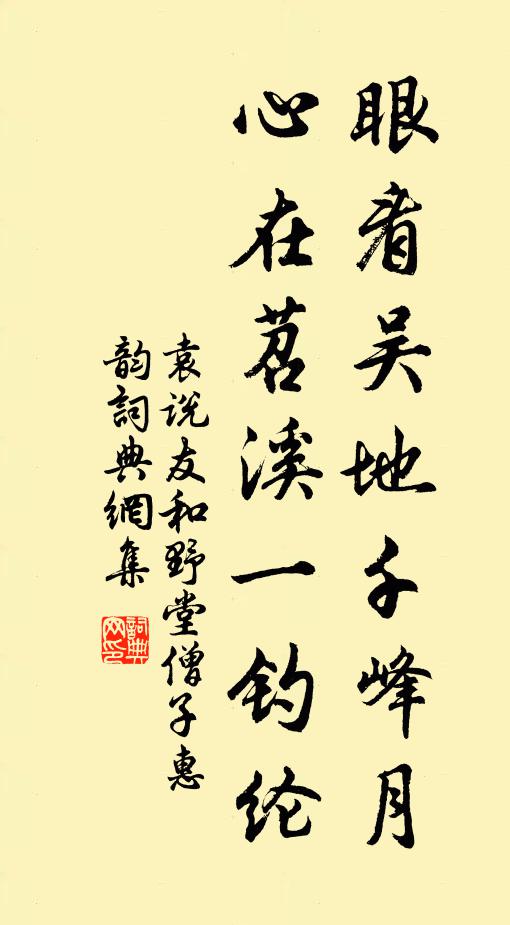 眼看吴地千峰月
心在苕溪一钓纶
袁说友和野堂僧子惠
韵詞典網集
詞典网印